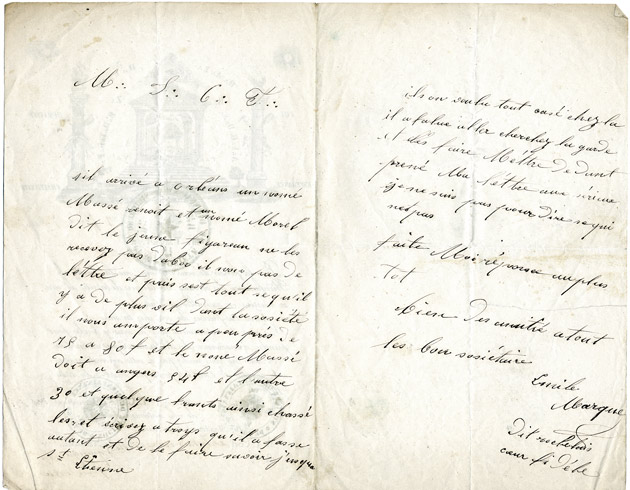 M∴ S∴ C∴ T∴
sil arrivé a orléans un nomé
Massé benoit et un nomé Morel
dit la jeune figareau ne les
recevez pas dabor il nons pas de
léttre et puis sest tout se qu'il
y a de plus vil dant la sosiété
il nous emporte a peu prés de
75 a 80f et le nomé Massé
doit a angers 54f et l'autre
30 et quelque frants ainsi chassé
les et a troys qu'il a fasse
autant et de le faire savoir j'usqua
St Etienne
ils on voulu tout casé chez la
il a falue alla cherchez la garde
et les faire Méttre dedant
prené Ma léttre
je ne suis pas pour dire se qui
nest pas
faite Moi réponse au plus
Tot
bien des amitié a tout
les bon sosiétaire
Emile
Marque
Dit rochelais
cœur fidéle